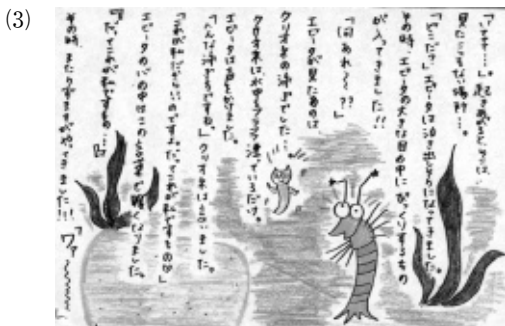 (3)
「いてて…。」起き上がるとそこは、
見たこともない場所…。
「どこだ?」エビータは泣き出しそうになってきました。
その時、エビータの大きな目の中にびっくりするもの
が入ってきました!!
「何あれ〜??」
エビータが見たものは
クリオネの泳ぎでした…
クリオネは水中をフラフラ漂っているだけ。
エビータは声をかけました。
「へんな泳ぎ方ですね。」クリオネは言いました。
「これが私だからいいのですよ。だってこれが私ですもの♡」
エビータの心の中はこの言葉で軽くなりました。
「だってこれが私ですもの…
その時、またうずまきがやってきました!!!「ワァ〜〜〜〜」